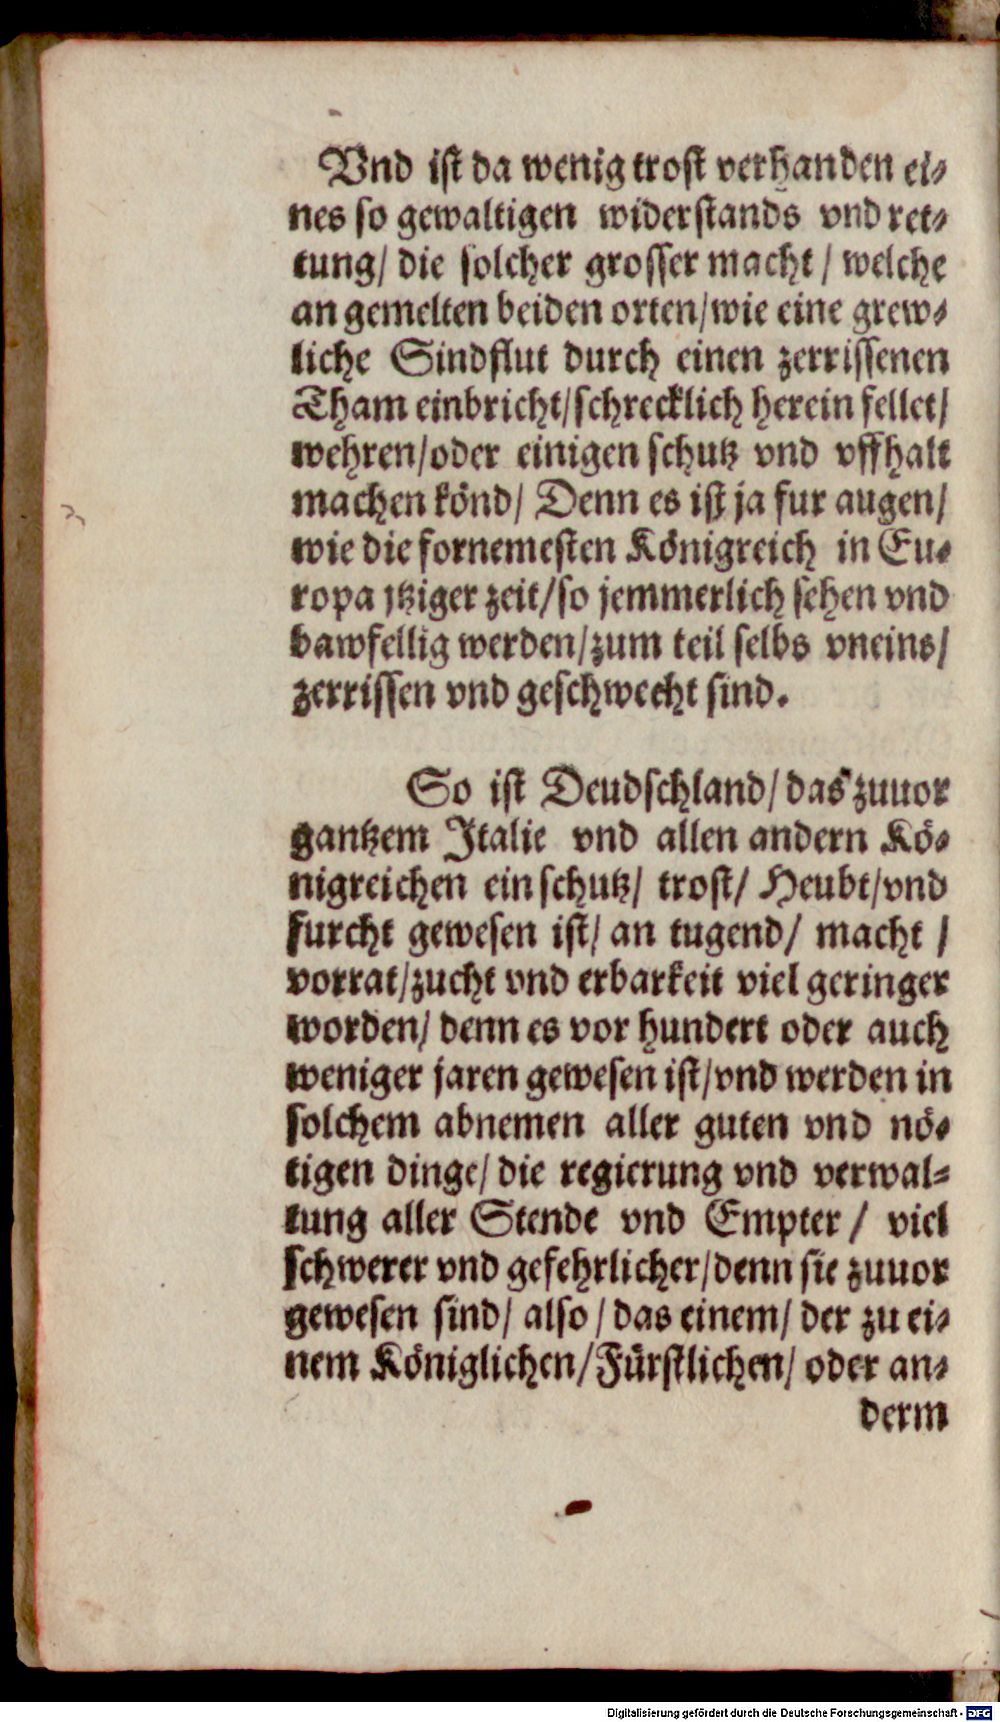 Vnd ist da wenig trost verhanden ei⸗
nes so gewaltigen widerstands vnd ret⸗
tung/ die solcher grosser macht / welche
an gemelten beiden orten/wie eine grew⸗
liche Sindflut durch einen zerrissenen
Tham einbricht/schrecklich herein fellet/
wehren/oder einigen schutz vnd vffhalt
machen könd/ Denn es ist ja fur augen/
wie die fornemesten Königreich in Eu⸗
ropa jtziger zeit/so jemmerlich sehen vnd
bawfellig werden/zum teil selbs vneins/
zerrissen vnd geschwecht sind.
So ist Deudschland/das zuuor
gantzem Italie vnd allen andern Kö⸗
nigreichen ein schutz/ trost/ Heubt/vnd
furcht gewesen ist/ an tugend/ macht /
vorrat/zucht vnd erbarkeit viel geringer
worden/ denn es vor hundert oder auch
weniger jaren gewesen ist/vnd werden in
solchem abnemen aller guten vnd nö⸗
tigen dinge/ die regierung vnd verwal⸗
tung aller Stende vnd Empter / viel
schwerer vnd gefehrlicher/denn sie zuuor
gewesen sind/ also / das einem/ der zu ei⸗
nem Königlichen/Fürstlichen/ oder an⸗
derm
Digitalisierung gefördert durch die Deutsche Forschungsgemeinschaft - DFG